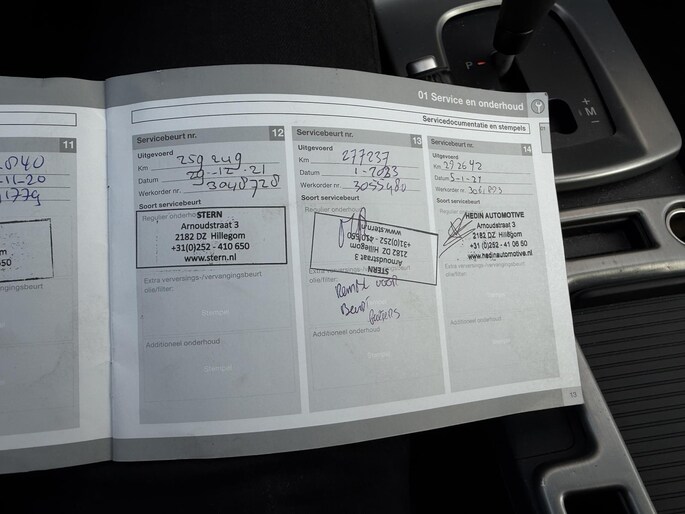 01 Service en onderhoud
Servicedocumentatie en stempels
11
-11-20
Servicebeurt nr. 12
Uitgevoerd
Km 259 249
Datum 29-12-21
Werkorder nr. 3048728
Soort servicebeurt
Regulier onderhoud
STERN
Arnoudstraat 3
2182 DZ Hillegom
+31(0)252 - 410 650
www.stern.nl
Extra verversings-/vervangingsbeurt
olie/filter:
Stempel
Additioneel onderhoud
Servicebeurt nr. 13
Uitgevoerd
Km 277237
Datum 1-2023
Werkorder nr. 3055480
Soort servicebeurt
Regulier onderhoud
STERN
Arnoudstraat 3
2182 DZ Hillegom
+31(0)252 - 410 650
www.stern.nl
Extra
olie/filter:
voor
Additioneel onderhoud
Servicebeurt nr. 14
Uitgevoerd
Km 292642
Datum
Werkorder nr.
Soort servicebeurt
HEDIN AUTOMOTIVE
Arnoudstraat 3
2182 DZ Hillegom
+31 (0)252 - 41 06 50
www.hedinautomotive.nl
Extra verversings-/vervangingsbeurt
olie/filter:
Additioneel onderhoud
13
650
P
+
M
-